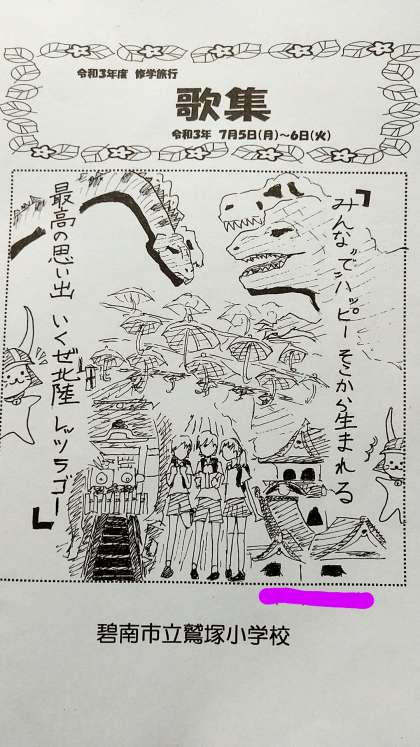 令和3年度 修学旅行
歌集
令和3年 7月5日(月)~6日(火)
『みんなでハッピー そこから生まれる
最高の思い出 いくぜ北陸 レッツらゴー』
碧南市立鷲塚小学校